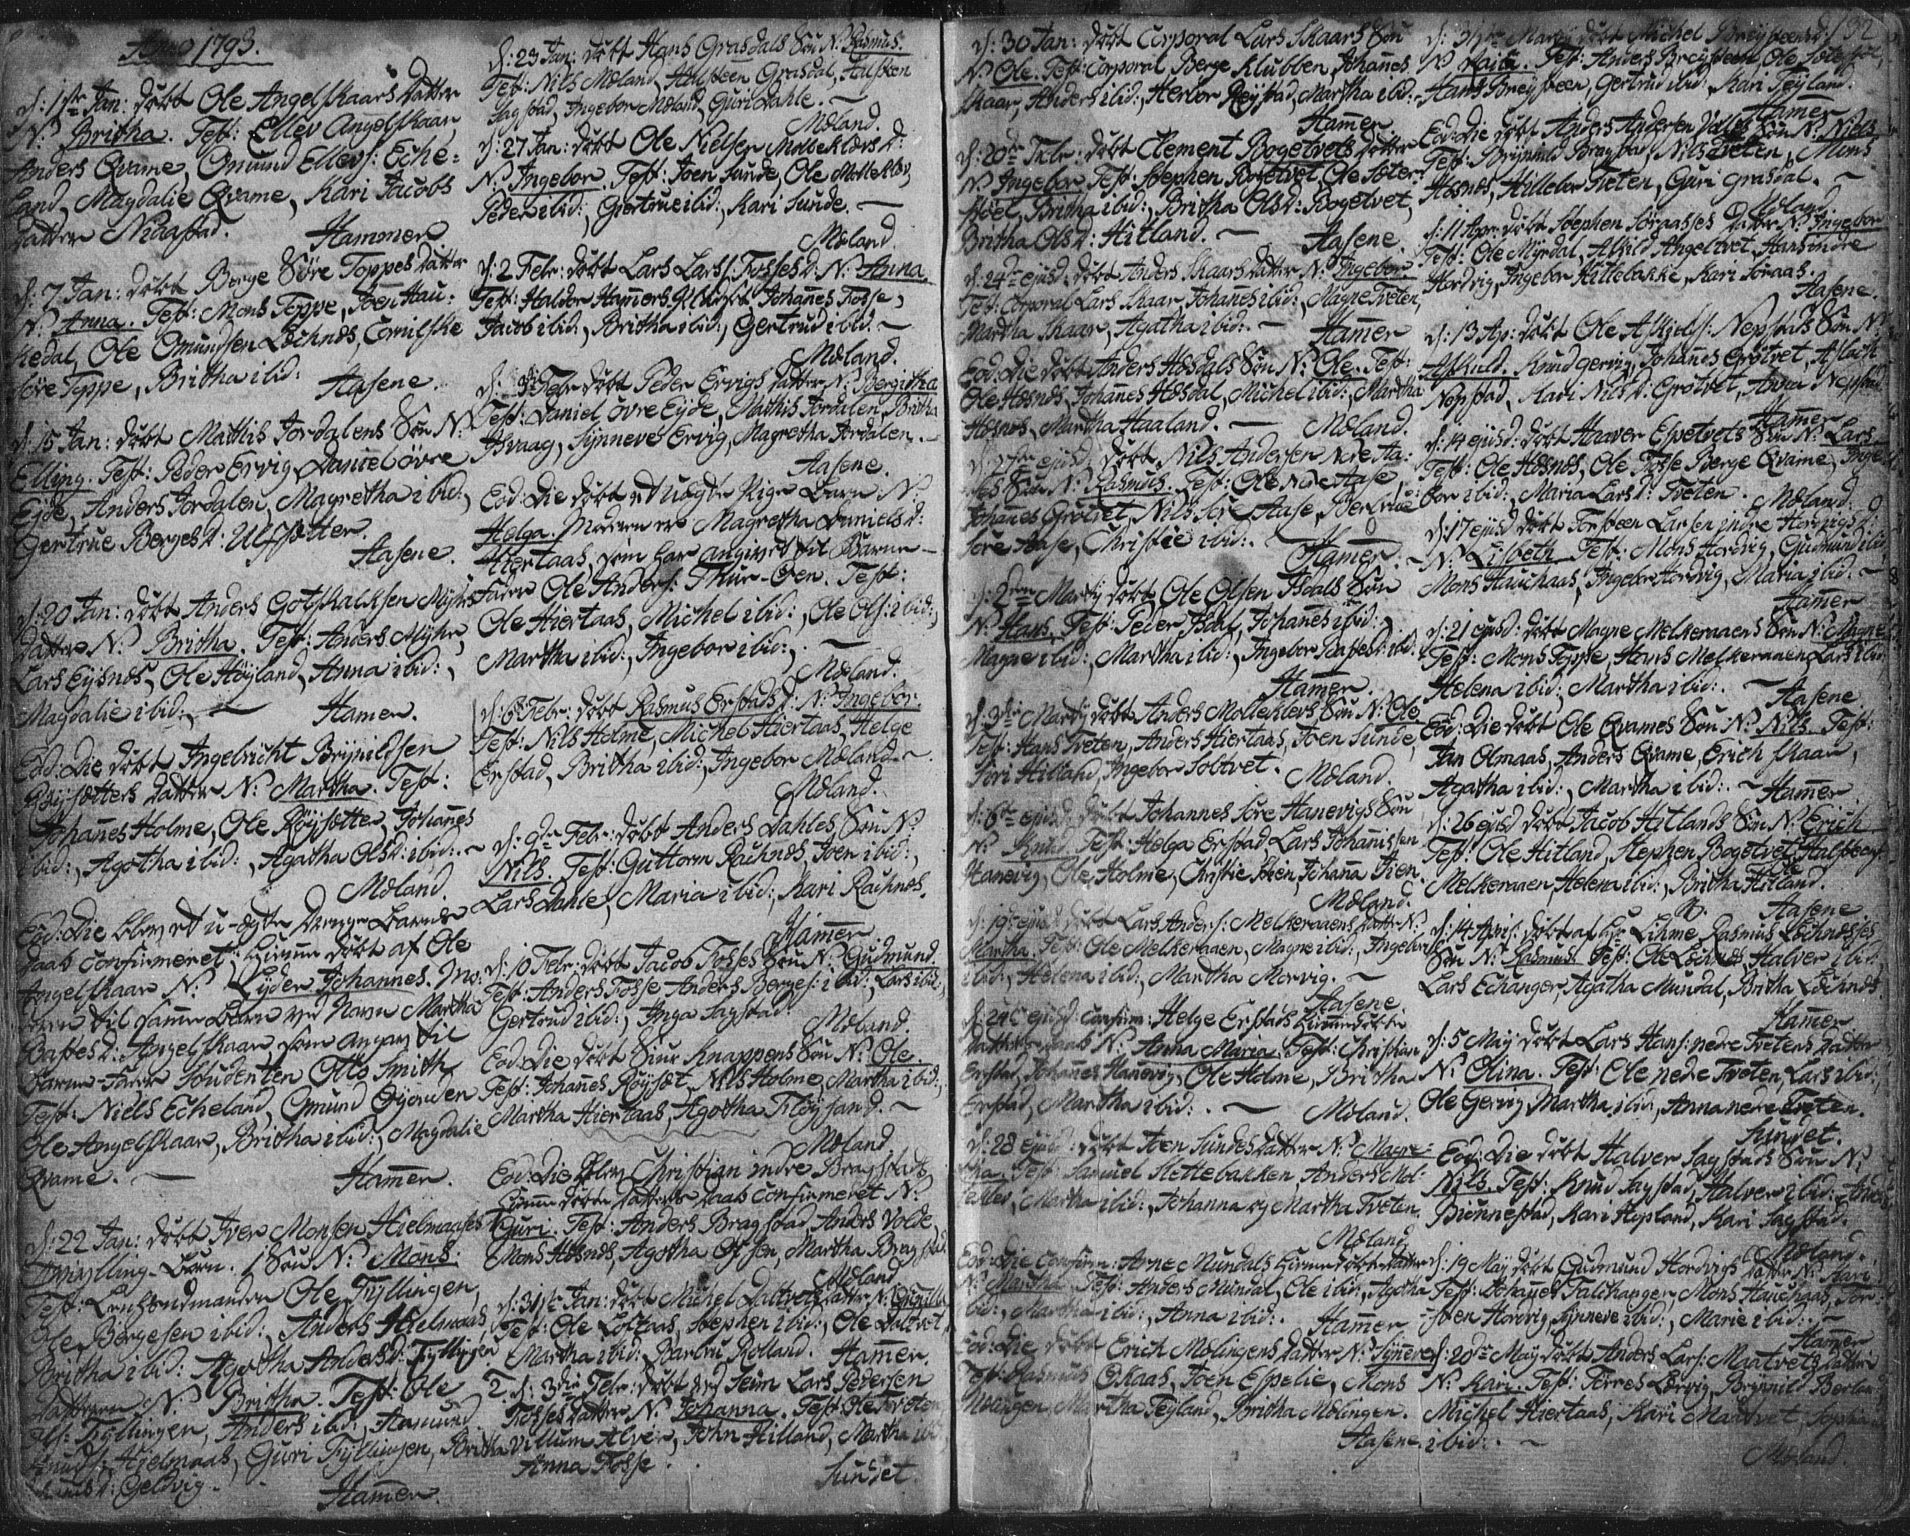 Anno 1793.
d: 1ste Jan: döbt Ole Angelskaars datter
N: Britha. Test: Ellev Angelskaar,
Anders Qvame, Omund Ellevs: Eche-
land, Magdalie Qvame, Kari Jacobs
datter Niaastad. Hammer
d: 7 Jan: döbt Berge Söre Toppes datter
N: Anna. Test: Mons Toppe, Joen Hau-
kedal, Ole Omundsen Lochnæs, Cornilske
Söre Toppe, Britha ibid: Aasene.
d: 15 Jan: döbt Mathis Jordalens Sön N:
Elling. Test: Peder Ervig, Daniel övre
Eyde, Anders Jordalen, Magretha ibid:,
Gertrue Berges d: Ulfsætter.
Aasene.
d: 20 Jan: döbt Anders Gotskalcksen Myhrs
datter N: Britha. Test: Anders Myhr,
Lars Eysnæs, Ole Höyland, Anna ibid:,
Magdalie ibid: — Hamer.
Eod: Die döbt Ingebricht Brynildsen
Röysetters datter N: Martha. Test:
Johanes Holme, Ole Röysetter, Johanes
ibid:, Agotha ibid:, Agatha Olsd: ibid: —
Moland.
Eod: Die blev et u-ægte Drenge-Barns
daab confirmeret, hiemme döbt af Ole
Angelskaar N: Lyder Johannes. Mo-
deren til samme Barn ved Navn Martha
Bastes d: Angelskaar, som angav til
Barne-Fader Studenten Otto Smith.
Test: Niels Echeland, Omund
Ole Angelskaar, Britha ibid:, Magdalie
Qvame. — Hamer.
d: 22 Jan: döbt Iver Monsen Hielmaases
Tvilling-Börn. 1 Sön N: Mons.
Test: Lensmanden Ole Fyllingen,
Ole Børgesen ibid:, Anders Hielmaas,
Britha ibid: Agotha Anders d: Fyllingen
datteren N: Britha. Test: Ole
Fyllingen, Anders ibid:, Aamund
Hielmaas, Guri Fyllingen, Britha
Geldvig. Hamer.
d: 23 Jan: döbt Hans Grasdals Sön N: Rasmus.
Test: Nils Moland, Halsteen Grasdal, Halsten
Sagstad, Ingebor Moland, Guri Dahle. —
Moland.
d: 27 Jan: döbt Ole Nielsen Mollekløvs d:
N: Ingebor. Test: Joen Sunde, Ole Mollekløv,
Peder ibid:, Giertrue ibid:, Kari Sunde. —
Moland.
d: 2 Febr: döbt Lars Larss: Fosses d: N: Anna
Test: Haldor Hamers Johanes Fosse,
Jacob ibid:, Britha ibid:, Gertrud ibid: —
Moland.
Febr: döbt Peder Ervigs datter N: Bergitha
Test: Daniel övre Eyde, Mathis Jordalen, Britha
Isvaag, Synneve Ervig, Magretha Jordalen. —
Aasene.
Eod: Die döbt et uægte Pige Barn N:
Helga. Moderen er Magretha Daniels d:
Hiertaas, som har angivet til Barne-
Fader Ole Anders: Thur-Öen. Test:
Ole Hiertaas, Michel ibid:, Ole Ols: ibid:,
Martha ibid:, Ingebor ibid: —
Moland.
d: 6 Febr: döbt Rasmus Erstads d: N: Ingebor:
Test: Nils Holme, Michel Hiertaas, Helge
Erstad, Britha ibid:, Ingebor Moland. —
Moland.
d: 9de Febr: döbt Anders Dahles Sön N:
Nils. Test: Guttorm Rachnæs, Joen ibid:,
Lars Dahle, Maria ibid:, Kari Rachnæs.
Hamer
d: 10 Febr: döbt Jacob Fosses Sön N: Gudmund.
Test: Anders Fosse, Anders Berges: ibid:, Lars ibid:,
Gertrud ibid:, Inga Sagstad.
Moland.
Eod: Die döbt Siur Knappens Sön N: Ole.
Test: Johanes Röyset, Nils Holme, Martha ibid:,
Martha Hiertaas, Agotha Flöysand. —
Moland
Eod: Die blev Christian indre Bragstads
hieme döbte datters daab confirmeret N:
Guri. Test: Anders Bragstad, Anders Volde,
Mons Hosnæs, Agotha Martha Bragstad
Moland
d: 31te Jan: döbt Michel Daltvets datter N:
Test: Ole Loftaas, Stephen ibid:, Ole Daltvet,
Martha ibid: Barbru Rolland. Hamer.
2 d: 3die Febr: döbt ved Seim Lars Pedersen
Fosses datter N: Johanna. Test: Ole Tveten,
Villum Alver, John Hilland, Martha ibid:,
Anna Fosse. Sundet.
d: 30 Jan: döbt Corporal Lars Skaars Sön
N: Ole. Test: Corporal Berge Klubben, Johanes
Skaar, Anders ibid:, Herbor Reystad, Martha ibid: —
Hamer
d: 20de Febr: döbt Clement Bogetvets datter
N: Ingebor Test: Stephen Bogetvet, Ole Sæter-
stöel, Britha ibid:, Britha Ols d: Bogetvet,
Britha Ols d: Hitland. — Aasene.
d: 24de ejusd: döbt Anders Skaars datter N: Ingebor
Test: Corporal Lars Skaar, Johanes ibid:, Magne Tveten,
Martha Skaar, Agatha ibid: — Hamer
Eod: Die döbt Anders Hosdals Sön N: Ole. Test:
Ole Hosnæs, Johanes Hosdal, Michel ibid:, Martha
Hosnæs, Martha Haaland. — Moland.
ejusd: döbt Nils Andersen Nere Aa-
ses Sön N: Rasmus. Test: Ole Nere Aase,
Johanes Grötvet, Nils Söre Aase, Berbrue
Söre Aase, Christie ibid: Hamer. —
d: 2den Martij döbt Ole Olsen Isdals Sön
N: Hans. Test: Peder Isdal, Johanes ibid:,
Magne ibid:, Martha ibid:, Ingebor ibid:
Hamer.
d: 3die Martij döbt Anders Mollekløvs Sön N: Ole
Test: Hans Tveten, Anders Hiertaas, Joen Sunde,
Siri Hilland, Ingebor Soltvet. Moland.
d: 6te ejusd: döbt Johannes Söre Hanevigs Sön
N: Knud. Test: Helga Erstad, Lars Johannissen
Hanevig, Ole Holme, Christie Steen, Johana Steen.
Moland.
d: 19de ejusd: döbt Lars Anders: Melkeraaens datter N:
Martha. Test: Ole Melkeraaen, Magne ibid:, Ingebor
ibid:, Helena ibid:, Martha Morvig. —
Aasene
d: 24de ejusd: confirm: Helge Erstads hiemedöbte
datters daab N: Anna Maria. Test: Christian
Erstad, Johanes Hanevig, Ole Holme, Britha
Erstad, Martha ibid: — Moland.
d: 28 ejusd: döbt Joen Sundes datter N: Magre-
tha. Test: Samuel Slettebakken, Anders Mol-
lekløv, Martha ibid:, Johanna og Martha Tveten.
Moland
Eod: Die confirm: Arne Mundals hiemedöbte datter
N: Martha. Test: Anders Mundal, Ole ibid:, Agotha
ibid:, Martha ibid:, Anna ibid: Hamer
Eod: Die döbt Erich Molingens datter N: Synneve
Test: Rasmus Okaas, Joen Espelie, Mons
Molingen, Martha Feyland, Britha Molingen.
Aasene
132
d: 31te Martij döbt Michel Breysteens
N: Test: Anders Breysteen, Ole
Hans Breysteen, Gertrud ibid:, Kari Feyland.
Hamer
Eod: Die döbt Anders Andersen Sön N: Niels
Test: Brynild Bragstad, Nils Tveten, Mons
Hosnæs, Hillebor Tveten, Guri Grasdal. —
Moland.
d: 11 Apr: döbt Stephen Soraasses datter N: Ingebor
Test: Ole Myrdal, Askild Angeltvet, Aars indre
Hordvig, Ingebor Hillebakke, Kari Soraas.
Aasene.
d: 13 Ap: döbt Ole Askields: Nepstads Sön N:
Askild. Knud Gervig, Johanes Grötvet, Aslack
Nepstad, Kari Nils d: Grötvet, Anna Nepstad
Hamer
d: 14 ejusd: döbt Haaver Espetvets Sön N: Lars.
Test: Ole Hosnæs, Ole Fosse, Berge Qvame, Inge-
bor ibid:, Maria Lars d: Tveten. Moland.
d: 17 ejusd: döbt Torsteen Larsen indre Hordvigs d:
N: Lisbeth. Test: Mons Hordvig, Gudmund ibid:
Mons Hauchaas, Ingebor Hordvig, Maria ibid: —
Hamer
d: 21 ejusd: döbt Magne Melkeraaens Sön N: Magne
Test: Mons Toppe, Hans Melkeraaen, Lars ibid:
Helena ibid:, Martha ibid: — Aasene
Eod: Die döbt Ole Qvames Sön N: Nils. Test:
Jan Olmaas, Anders Qvame, Erich Skaar,
Agatha ibid:, Martha ibid: — Hamer
d: 26 ejusd: döbt Jacob Hitlands Sön N: Erich
Test: Ole Hitland, Stephen Bogetvet, Halsteen
Melkeraaen, Helena ibid:, Britha Hitland.
Aasene
d: 14 April: döbt af Hr: Lihme Rasmus Lochnæsses
Sön N: Rasmus. Test: Ole Lochnæs, Halver ibid:
Lars Echanger, Agatha Mundal, Britha Lochnæs.
Hamer
d: 5 May döbt Lars Hans: nedre Tvetens datter
N: Olina. Test: Ole nedre Tveten, Lars ibid:
Ole Gervig, Martha ibid:, Anna nedre Tveten.
Sundet.
Eod: Die döbt Halver Sagstads Sön N:
Nils. Test: Knud Sagstad, Halver ibid:, Anders
Bionnestad, Kari Hopland, Kari Sagstad.
Moland.
d: 19 May döbt Gudmund Hordvigs datter N: Kari
Test: Johanes Salhanger, Mons Hauchaas, Tor-
steen Hordvig, Synneve ibid:, Marie ibid: —
Hamer
d: 20de May döbt Anders Lars: Maatvets datter
N: Kari. Test: Torres Lervig, Brynild
Michel Hiertaas, Kari Maatvet,
ibid: —
Moland.